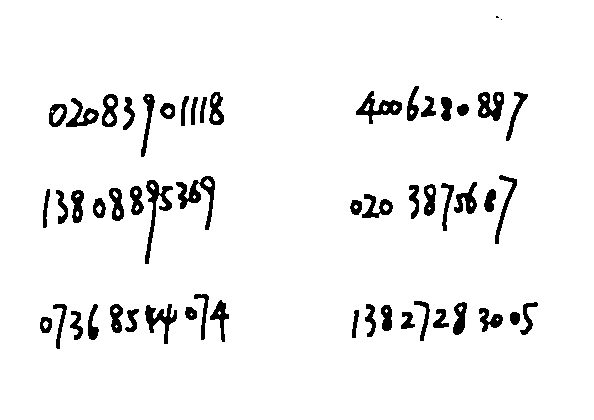 02083901118 4006280887
13808895369 020 3875687
07368544074 13827283005